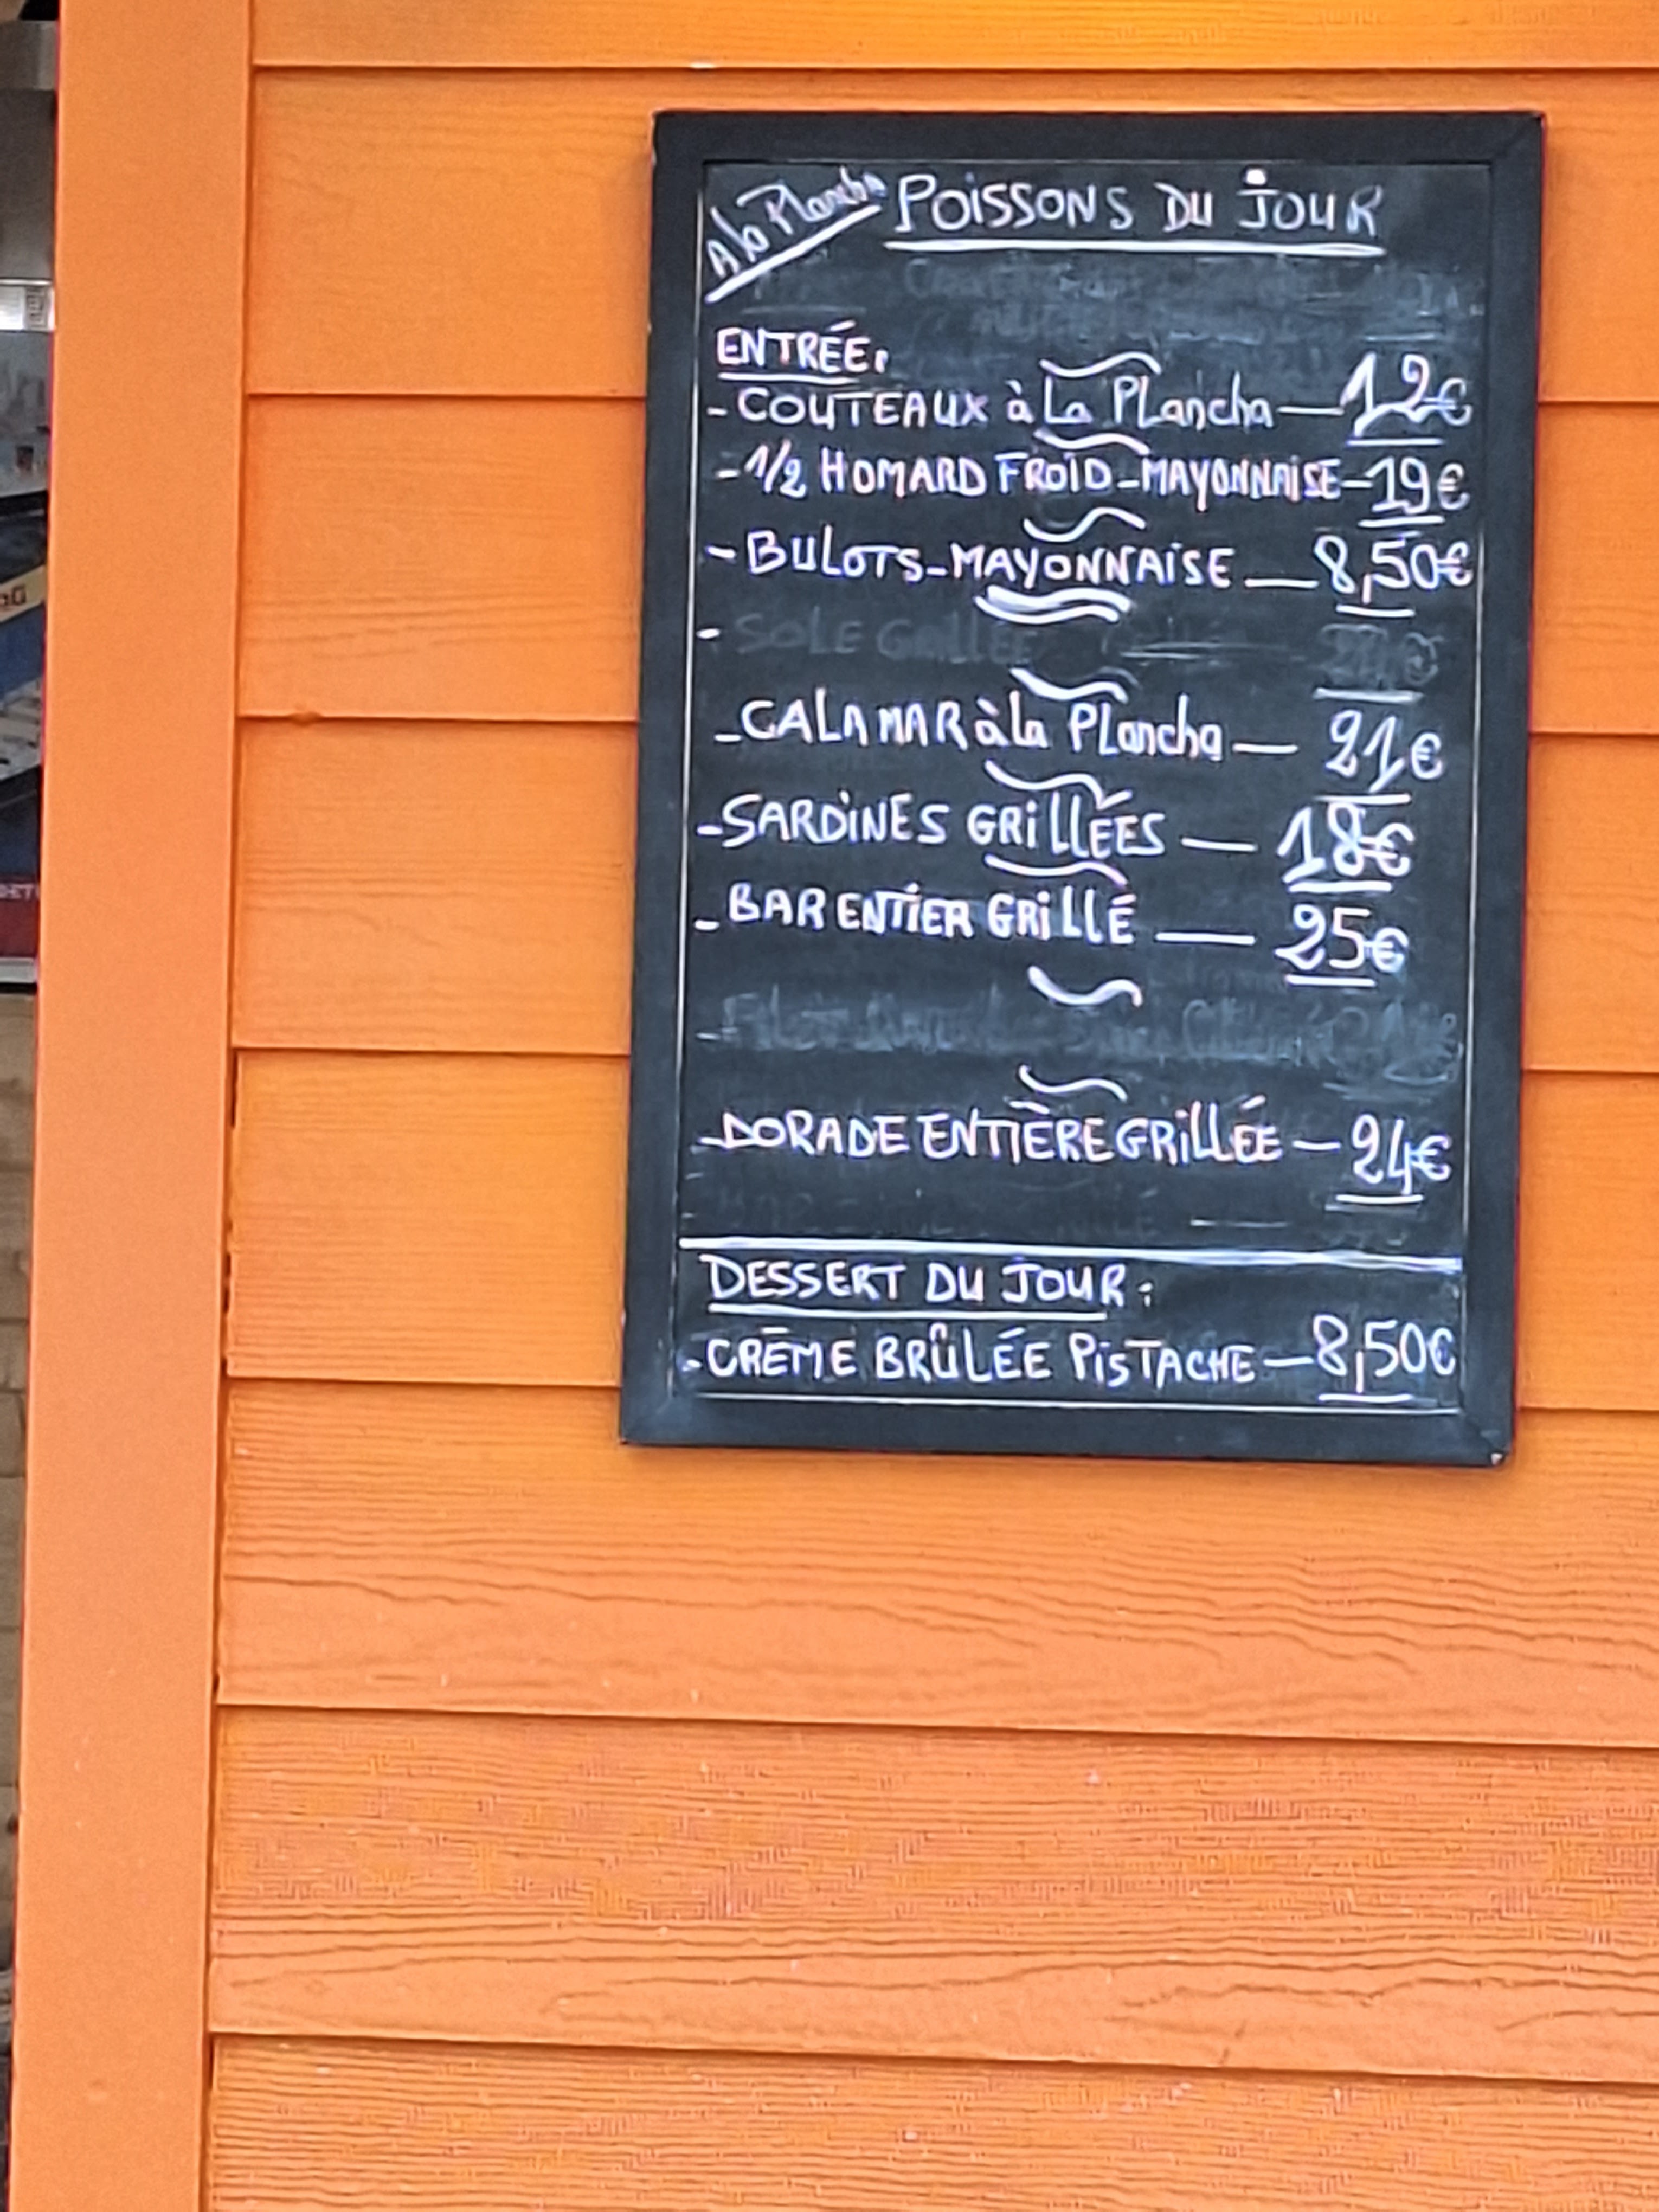 A la Plancha POISSONS DU JOUR
ENTRÉE:
- COUTEAUX à La PLancha — 12€
- 1/2 HOMARD FROID - MAYONNAISE - 19€
- BULOTS - MAYONNAISE — 8,50€
- SOLE GRILLÉE
- CALAMAR à la PLancha — 21€
- SARDINES GRILLÉES — 18€
- BAR ENTIER GRILLÉ — 25€
- DORADE ENTIÈRE GRILLÉE — 24€
DESSERT DU JOUR:
- CRÈME BRÛLÉE PISTACHE — 8,50€